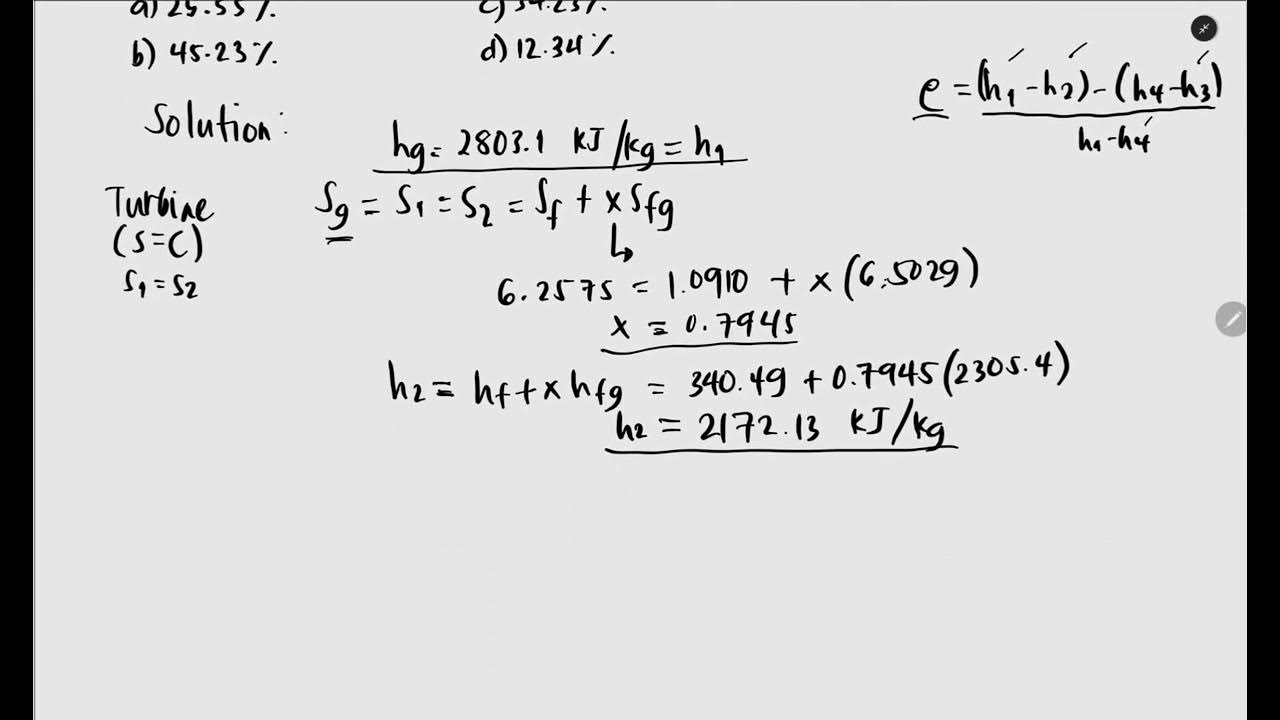 a) 25.55%.
c) 34.23%.
b) 45.23%.
d) 12.34%.
e = (h1 - h2) - (h4 - h3)
h1 - h4
Solution:
hg = 2803.1 KJ/kg = h1
Turbine
(S=C)
S1 = S2
Sg = S1 = S2 = Sf + x Sfg
6.2575 = 1.0910 + x (6.5029)
x = 0.7945
h2 = hf + x hfg = 340.49 + 0.7945 (2305.4)
h2 = 2172.13 KJ/kg